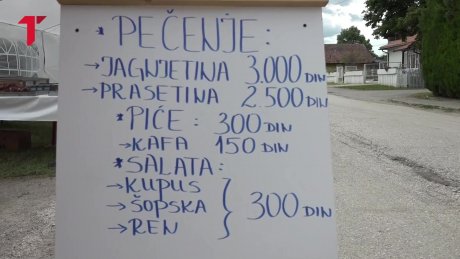 * PEČENJE:
→ JAGNJETINA 3.000 DIN
→ PRASETINA 2.500 DIN
* PIĆE: 300 DIN
→ KAFA 150 DIN
* SALATA:
→ KUPUS
→ ŠOPSKA } 300 DIN
→ REN